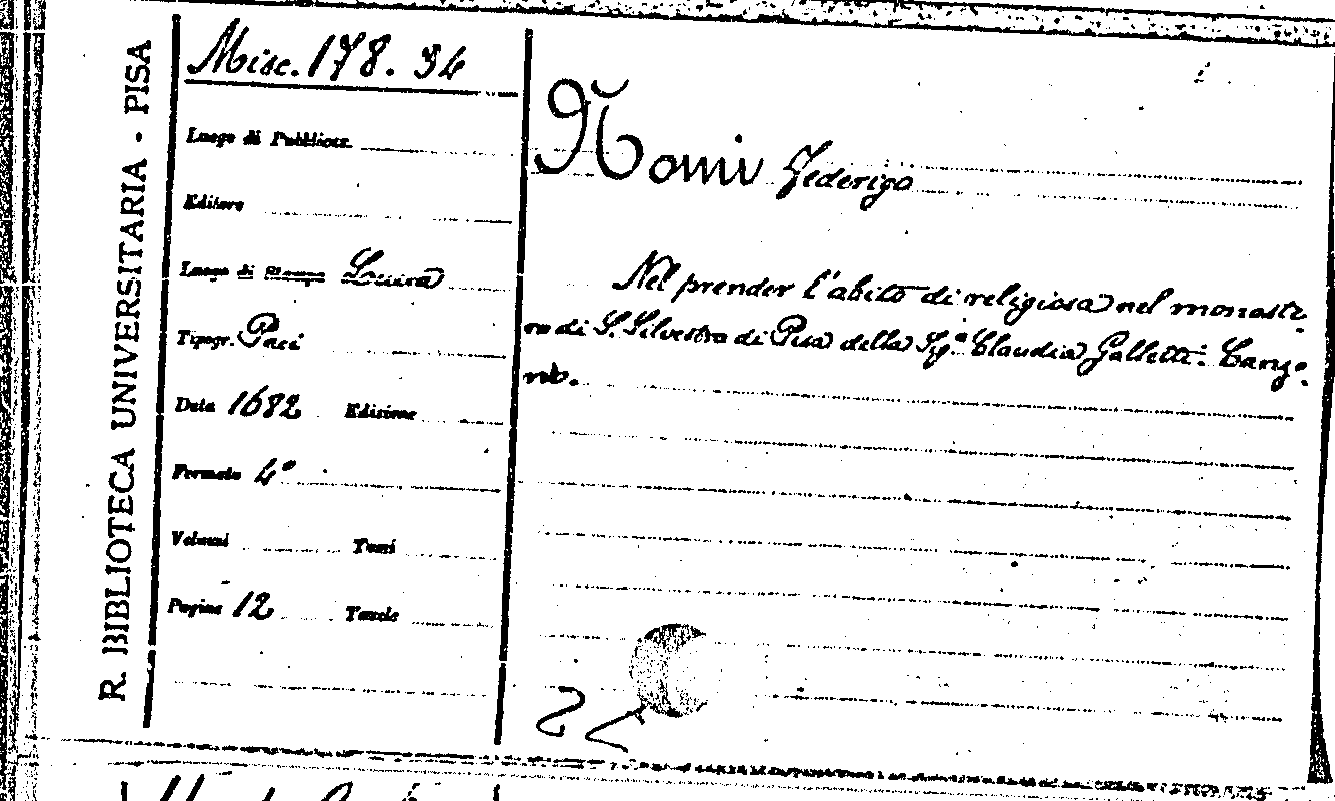 R. BIBLIOTECA UNIVERSITARIA - PISA
Misc. 178. 34
Luogo di Pubblicaz.
Editore
Luogo di Stampa Lucca
Tipogr. Paci
Data 1682 Edizione
Formato 4°
Volumi Tomi
Pagine 12 Tavole
Nomi Federigo
Nel prender l'abito di religiosa nel monaste-
ro di S. Silvestro di Pisa della Sig.a Claudia Galletti. Canzo-
ne.